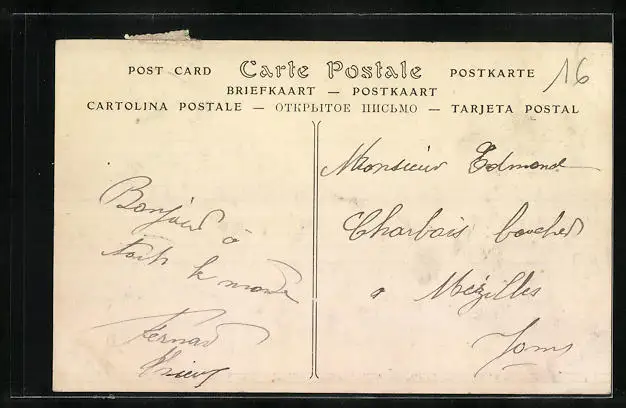 16
POST CARD Carte Postale POSTKARTE
BRIEFKAART — POSTKAART
CARTOLINA POSTALE — ОТКРЫТОЕ ПИСЬМО — TARJETA POSTAL
Monsieur Edmond
Charbois boucher
a Mézilles
Bonjour à
tout le monde
Fernand